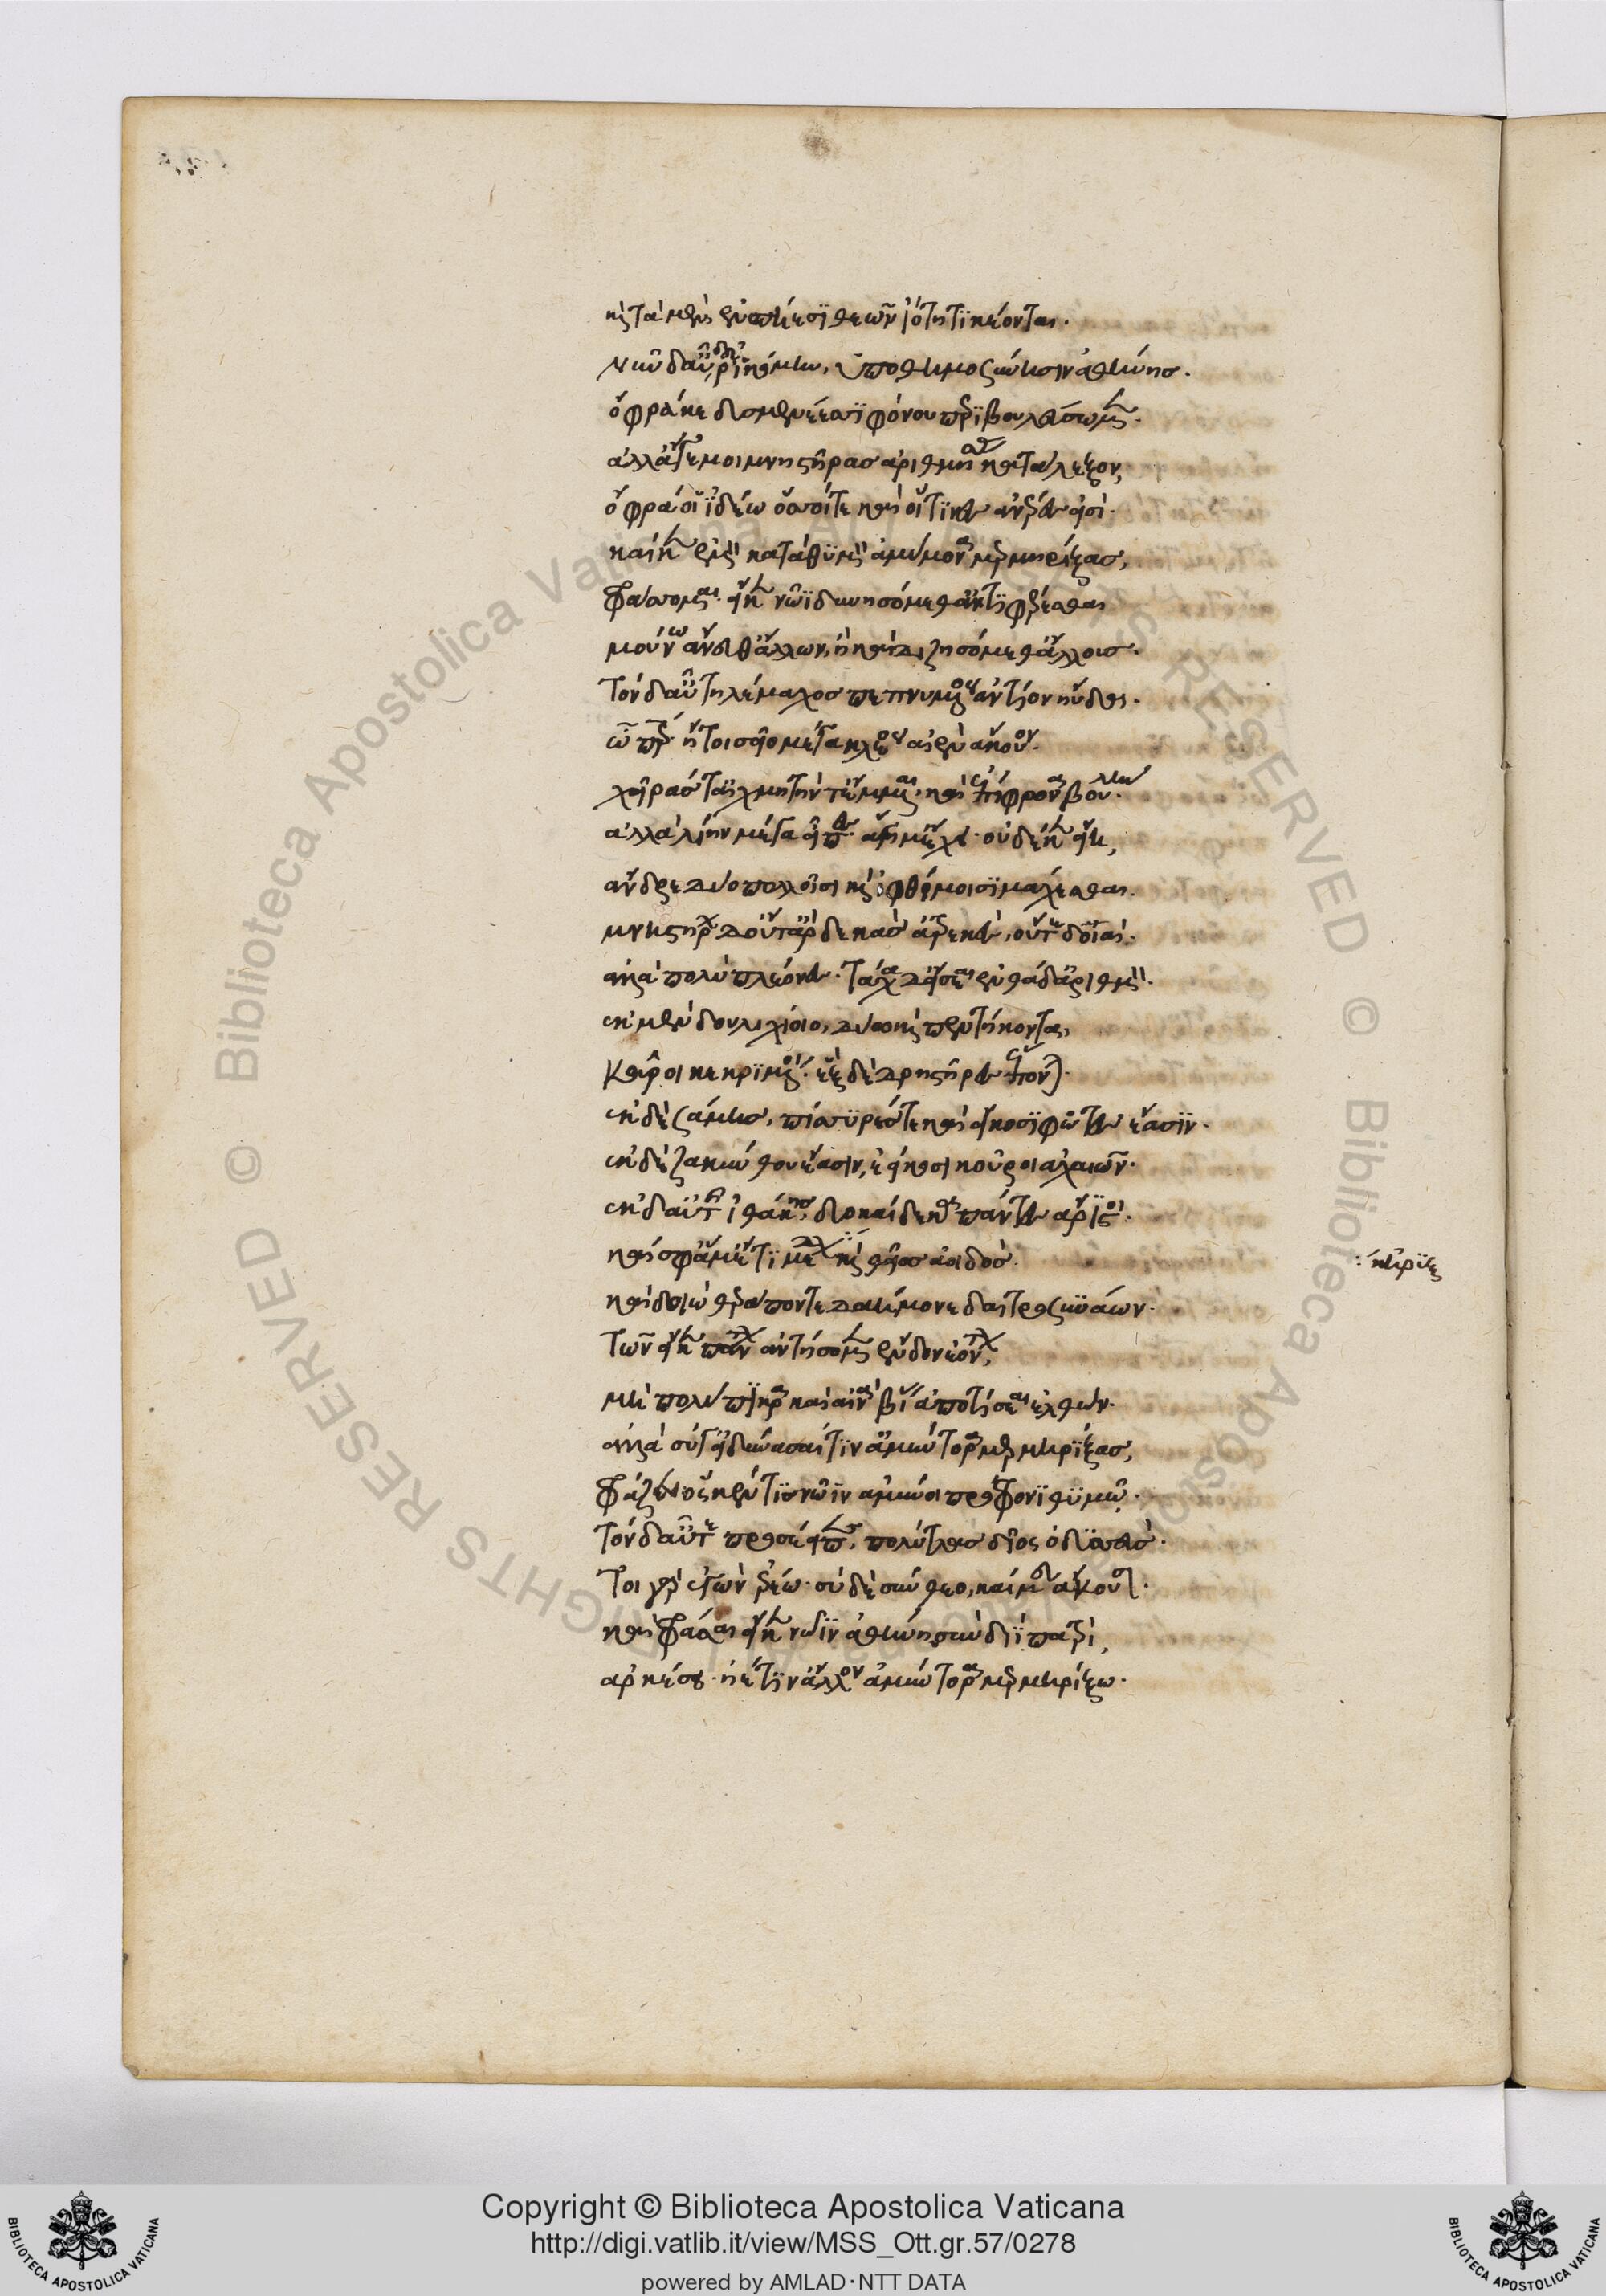 καὶ τὰ μὲν ἐν σπήεσι θεῶν ἰότητι κέονται.
νῦν δ' αὖ δεῦρ' ἱκόμην, ὑποθημοσύνησιν ἀθήνης.
ὄφρά κε δυσμενέεσσι φόνου πέρι βουλεύσωμεν.
ἀλλ' ἄγε μοι μνηστῆρας ἀριθμήσας κατάλεξον,
ὄφρα οἱ ἰδέω ὅσσοί τε καὶ οἵτινες ἀνέρες εἰσί.
καί κεν ἐμὸν κατὰ θυμὸν ἀμύμονα μερμηρίξας,
φράσσομαι. εἴ κεν νῶϊ δυνησόμεθ' ἀντιφέρεσθαι
μούνω ἄνευθ' ἄλλων, ἢ καὶ διζησόμεθ' ἄλλους.
τὸν δ' αὖ τηλέμαχος πεπνυμένος ἀντίον ηὔδα.
ὦ πάτερ ἤτοι σεῖο μέγα κλέος αἰὲν ἄκουον.
χεῖράς τ' αἰχμητὴν τ' ἔμμεναι. καὶ ἐπίφρονα βουλήν.
ἀλλὰ λίην μέγα εἶπες. ἄγη μ' ἔχει. οὐδέ κεν εἴη,
ἄνδρε δύο πολλοῖσι καὶ ἰφθίμοισι μάχεσθαι.
μνηστήρων δ' οὔτ' ἂρ δεκὰς ἀτρεκὲς, οὔτε δοιαί.
ἀλλὰ πολὺ πλέονες. τάχα δ' εἴσεαι ἐνθάδ' ἀριθμόν.
ἐκ μὲν δουλιχίοιο, δύο καὶ πεντήκοντα,
κοῦροι κεκριμένοι. ἓξ δὲ δρηστῆρες ἕπονται.
ἐκ δὲ σάμης, πίσυρές τε καὶ εἴκοσι φῶτες ἔασιν.
ἐκ δὲ ζακύνθου ἔασιν, ἐείκοσι κοῦροι ἀχαιῶν.
ἐκ δ' αὐτῆς ἰθάκης, δυοκαίδεκα πάντες ἄριστοι.
καί σφ' ἅμ' ἔστι μέδων καὶ θεῖος ἀοιδός.
: κῆρυξ
καὶ δοιὼ θεράποντε δαήμονε δαιτροσυνάων.
τῶν εἴ κεν πάντων ἀντήσομεν ἔνδον ἐόντων,
μὴ πολύπικρα καὶ αἰνὰ βίας ἀποτίσεαι ἐλθών.
ἀλλὰ σύ γ' εἰ δύνασαί τιν' ἀμύντορα μερμηρίξας,
φράζευ ὅς κέν τις νῶϊν ἀμύνοι πρόφρονι θυμῷ.
τὸν δ' αὖτε προσέειπε, πολύτλας δῖος ὀδυσσεύς.
τοιγὰρ ἐγὼν ἐρέω. σὺ δὲ σύνθεο, καί μευ ἄκουσον.
καὶ φράσαι εἴ κεν νῶϊν ἀθήνη σὺν διῒ πατρί,
ἀρκέσει. ἠέ τιν' ἄλλον ἀμύντορα μερμηρίξω.
Copyright © Biblioteca Apostolica Vaticana
http://digi.vatlib.it/view/MSS_Ott.gr.57/0278
powered by AMLAD·NTT DATA